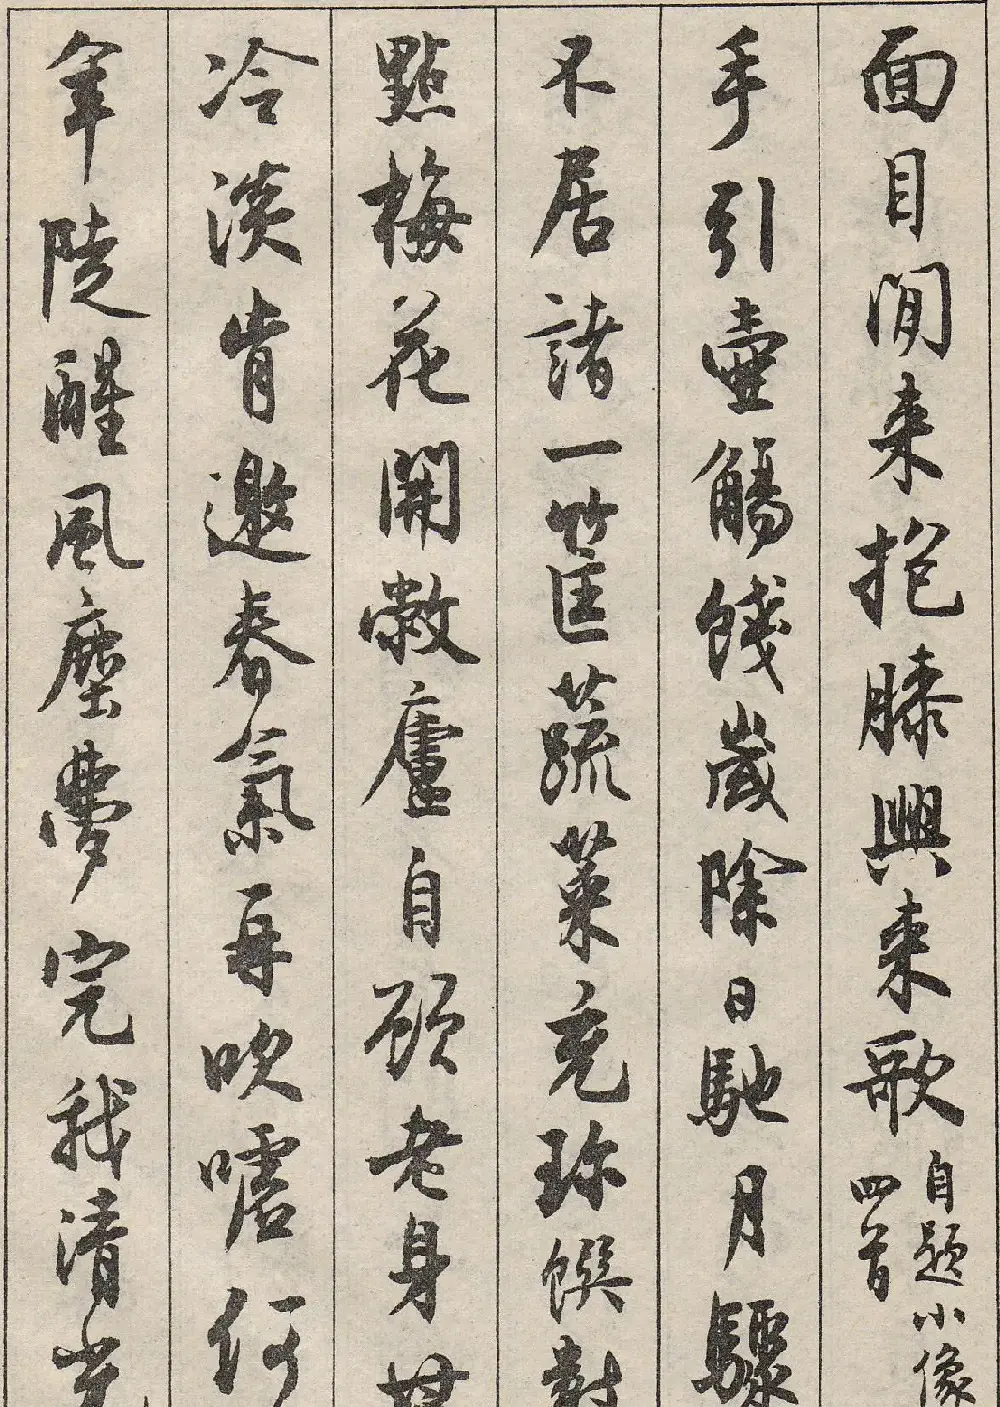 面目閒来抱膝興来歌 自題小像
四首
手引壺觴餞歲除日馳月驟
不居諸一筐蔬菜充珍饌對
點梅花開敝廬自顧老身世
冷淡肯邀春氣再吹噓何
年陡醒風塵夢完我清光